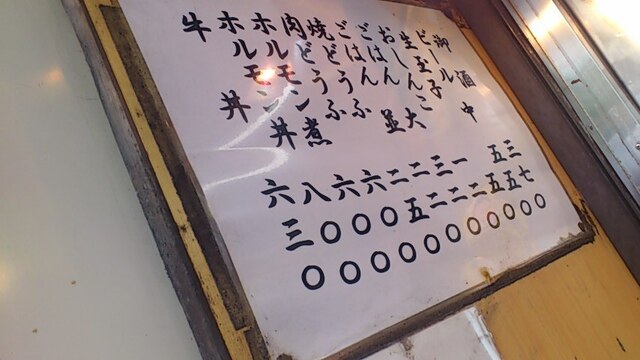 御酒 三七〇
ビール 中 五五〇
生玉子 五〇
おしんこ 一二〇
ごはん 大 三二〇
ごはん 並 二二〇
焼どうふ 二五〇
肉どうふ 六〇〇
ホルモン煮 六〇〇
ホルモン丼 八〇〇
牛丼 六三〇